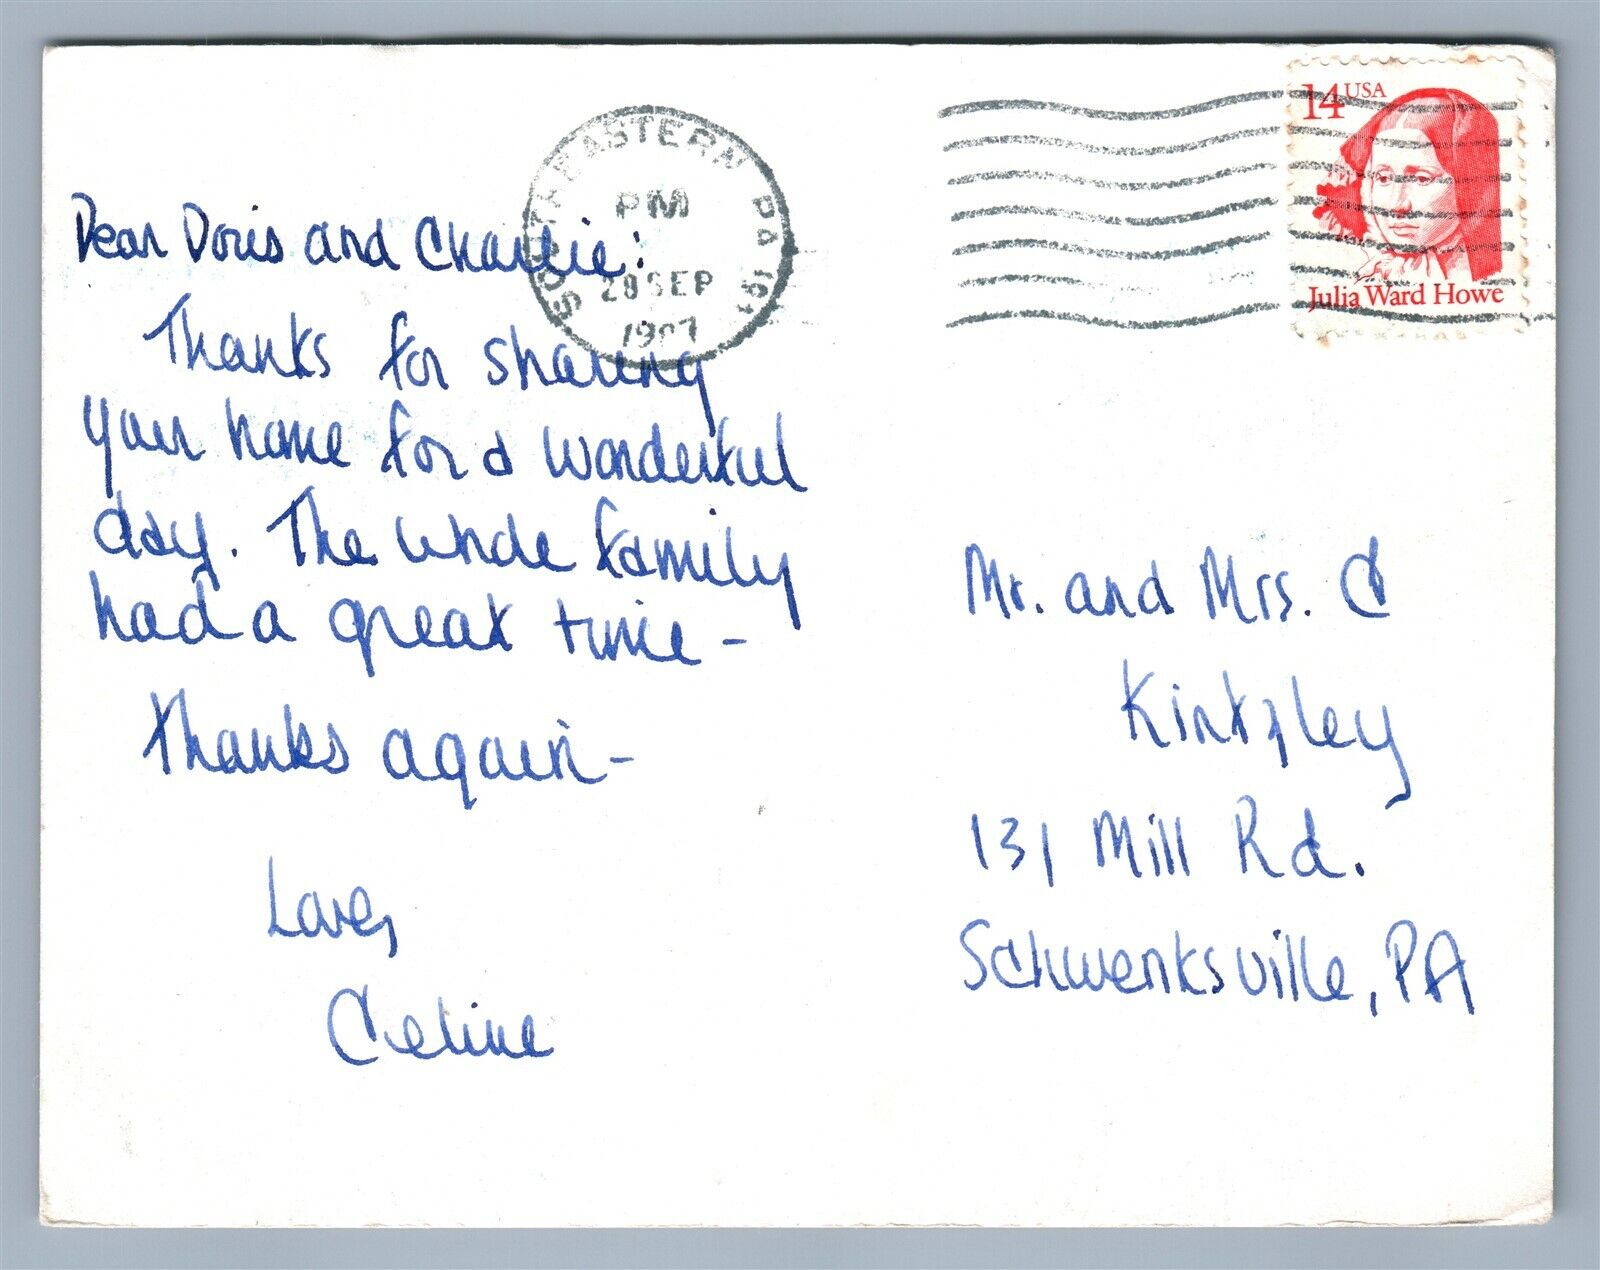 Dear Doris and Charlie:
Thanks for sharing
your home for a wonderful
day. The whole family
had a great time -
Thanks again -
Love,
Celine
SOUTHEASTERN PA 194
PM
28 SEP
1987
14 USA
Julia Ward Howe
Mr. and Mrs. C
Kintzley
131 Mill Rd.
Schwenksville, PA